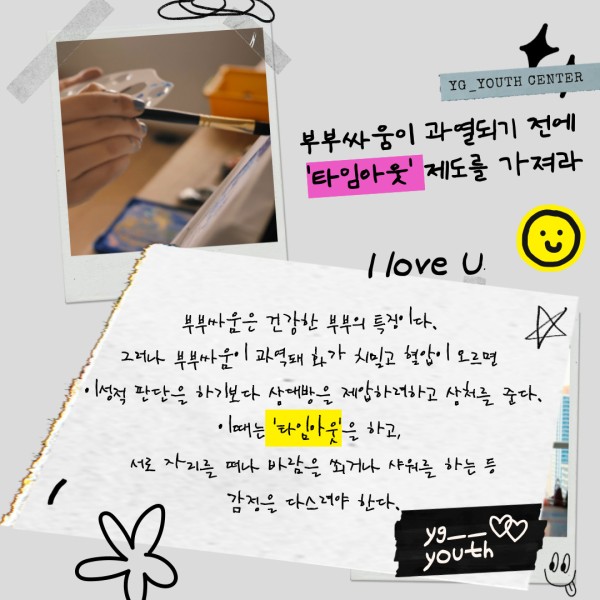 YG_YOUTH CENTER
부부싸움이 과열되기 전에
'타임아웃' 제도를 가져라
I love U
부부싸움은 건강한 부부의 특징이다.
그러나 부부싸움이 과역돼 화가 치밀고 혈압이 오르면
이성적 판단을 하기보다 상대방을 제압하려하고 상처를 준다.
이때는 '타임아웃'을 하고,
서로 자리를 떠나 바람을 쐬거나 샤워를 하는 등
감정을 다스려야 한다.
yg__
youth